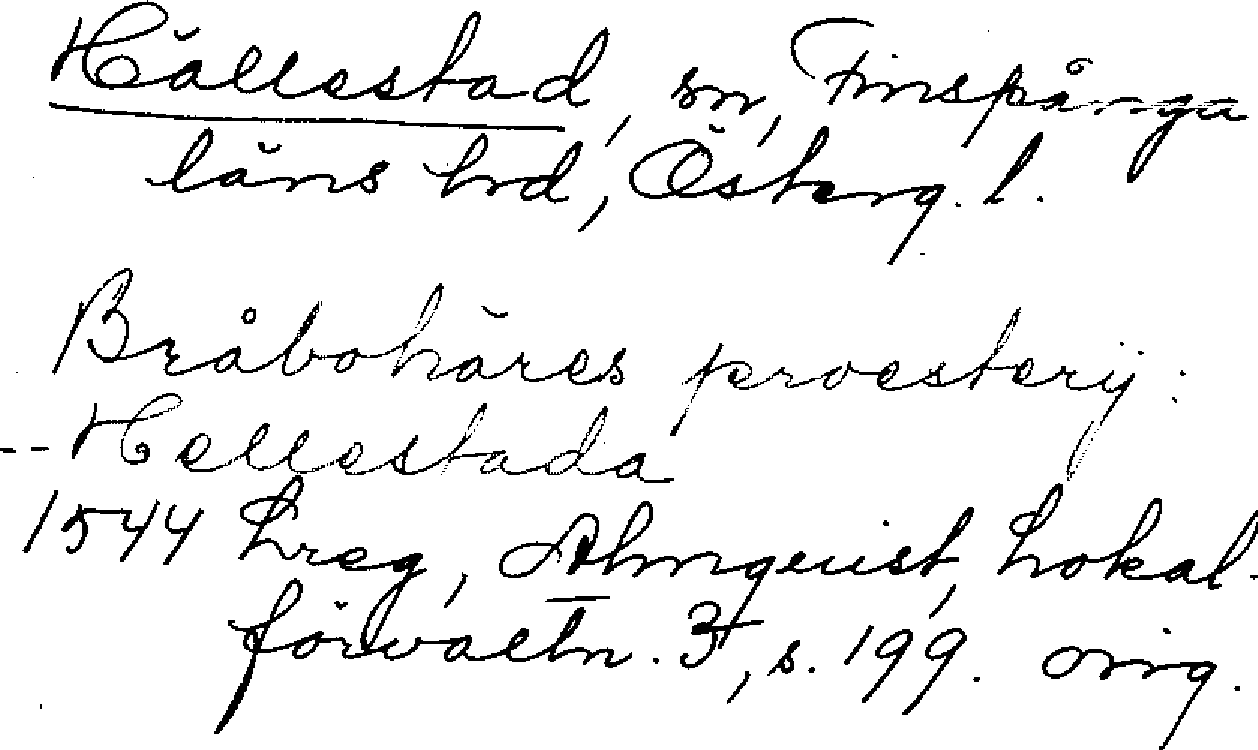 Hällestad, sn, Finspånga
läns hrd, Österg. l.
Bråbohäres proestery:
-- Hellestada
1544 Lreg, Almquist, Lokal-
förvaltn. 3, s. 199. orig.